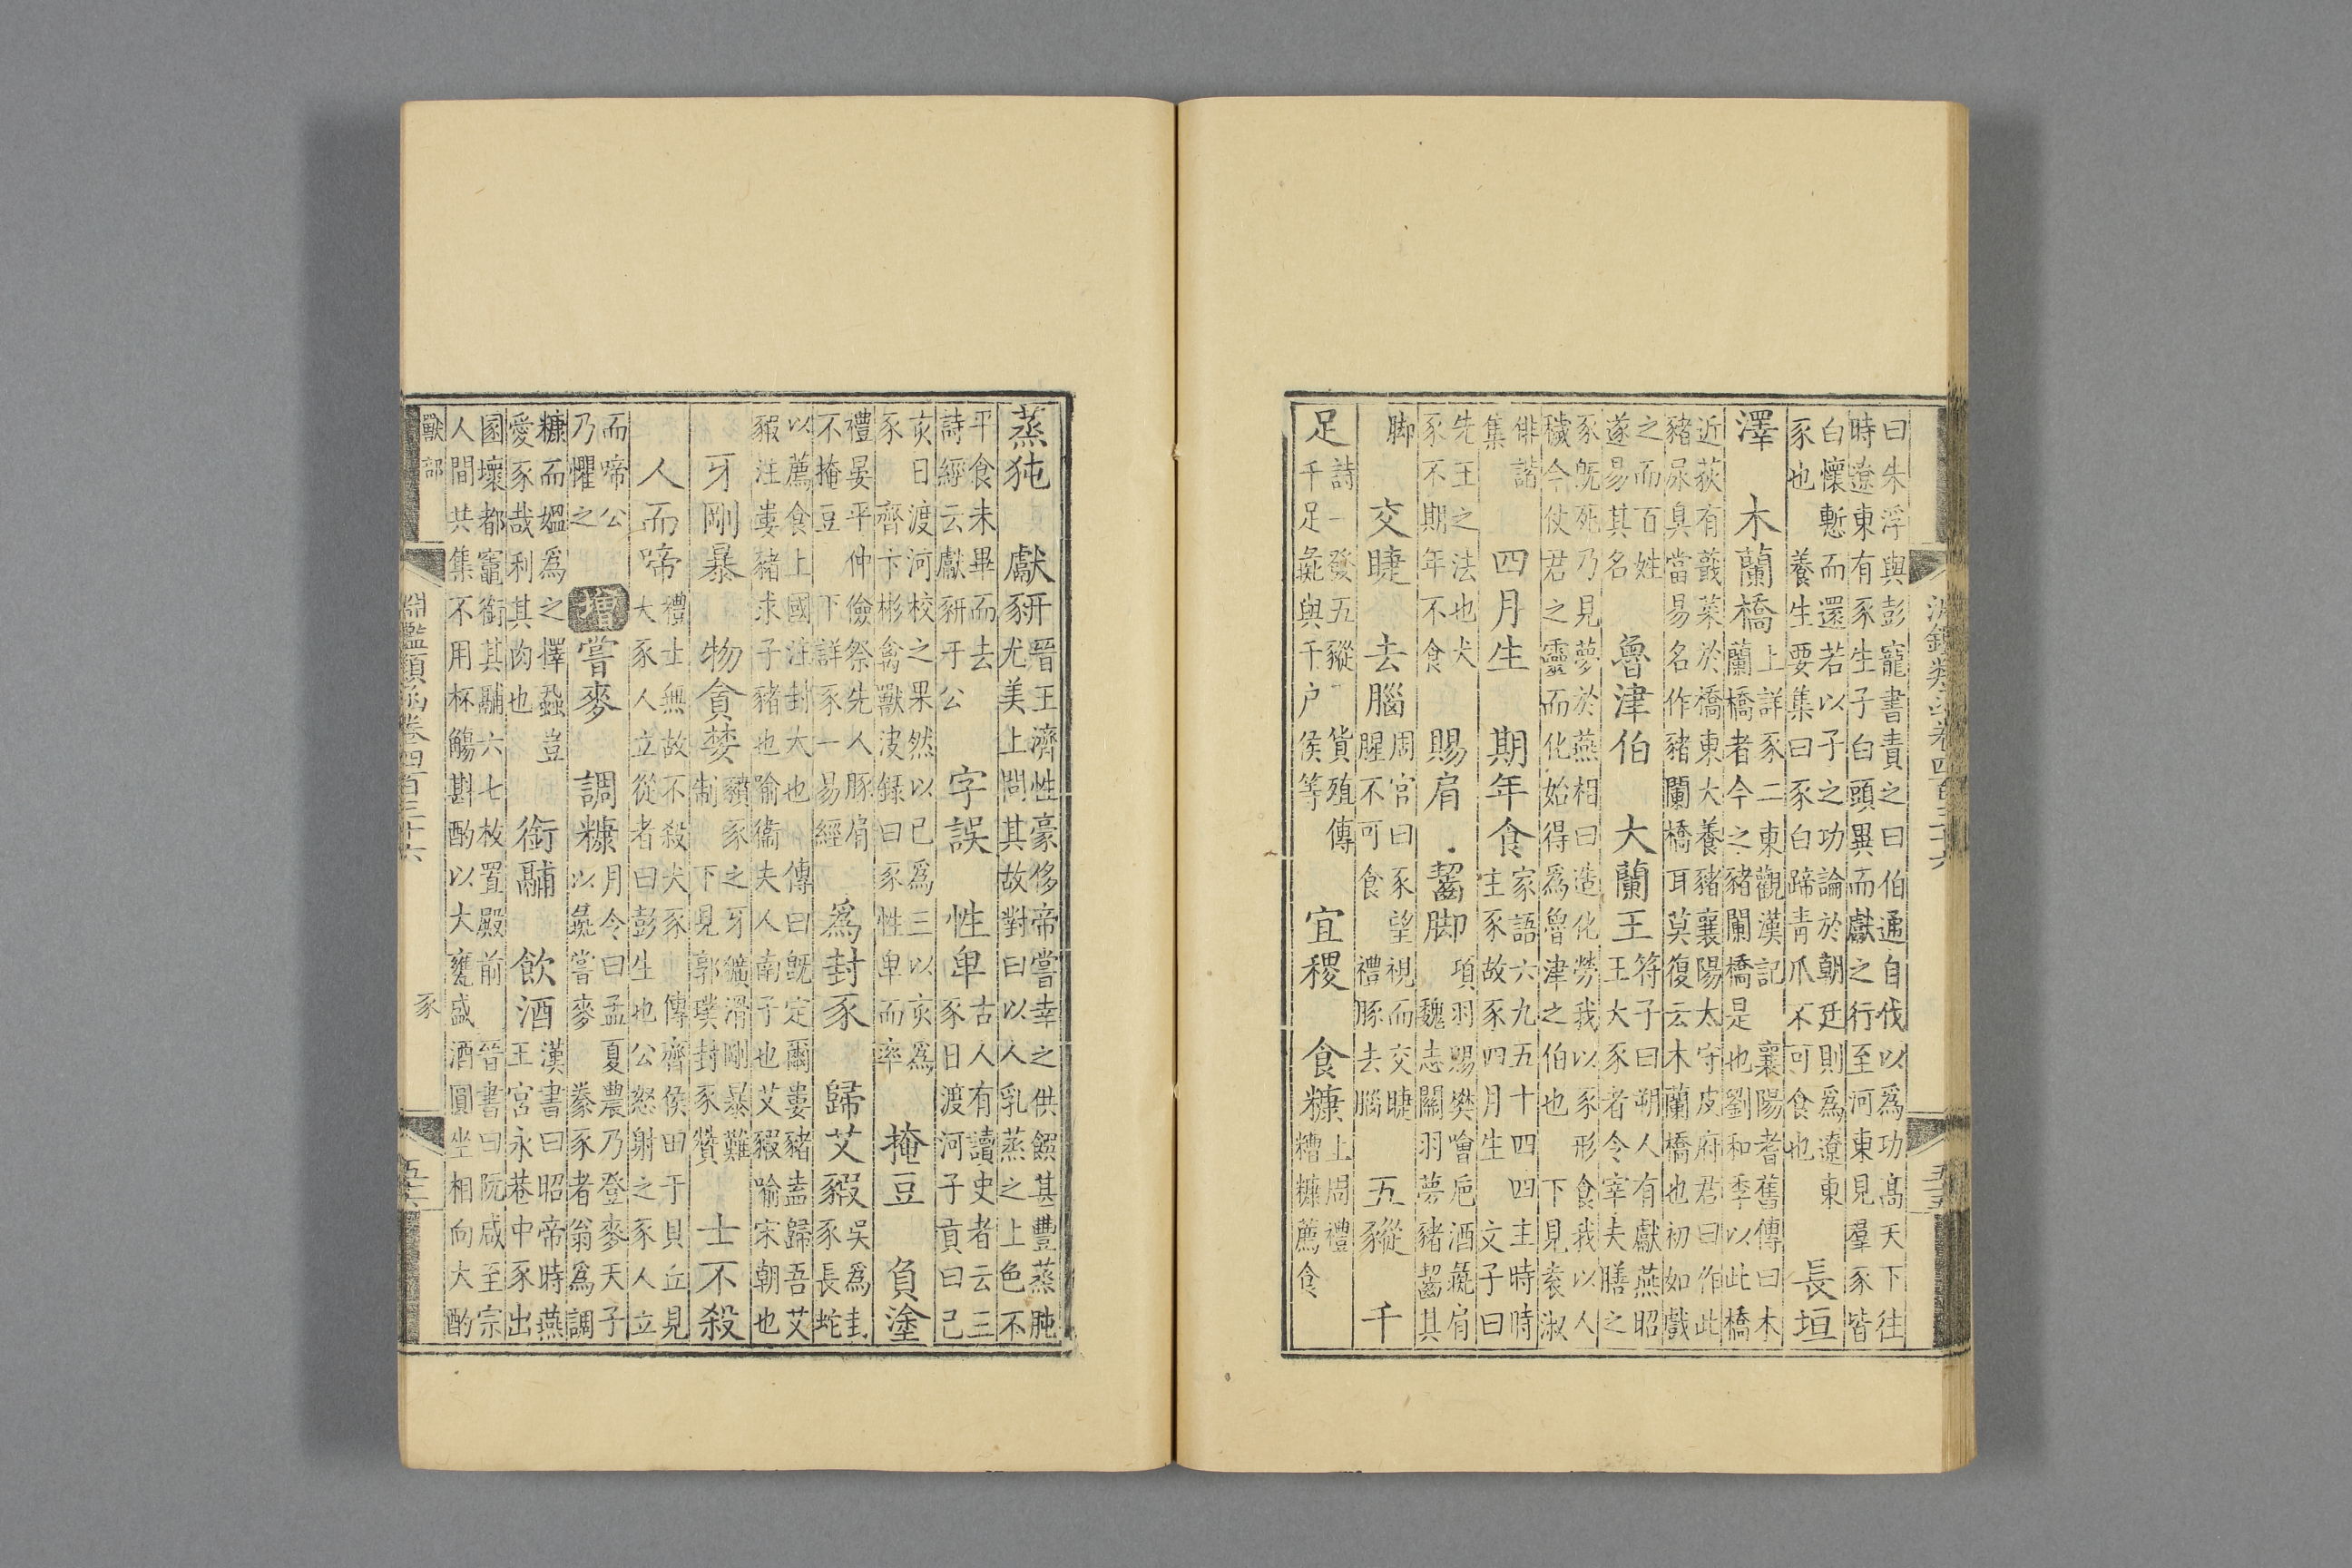 淵鑑類函卷四百三十六
五十五
曰朱浮與彭寵書責之曰伯通自伐以為功高天下往
時遼東有豕生子白頭異而獻之行至河東見羣豕皆
白懷慙而還若以子之功論於朝廷則為遼東
豕也
養生要集曰豕白蹄青爪不可食也
長垣
澤
木蘭橋
上詳豕二東觀漢記
襄陽耆舊傳曰木
蘭橋者今之豬闌橋是也劉和季以此橋
近荻有蕺菜於橋東大養豬襄陽太守皮府君曰作此
豬屎臭當易名作豬闌橋耳莫復云木蘭橋也初如戲
之而百姓
遂易其名
魯津伯
大蘭王
符子曰朔人有獻燕昭
王大豕者令宰夫膳之
豕既死乃見夢於燕相曰造化勞我以豕形食我以人
穢今仗君之靈而化始得為魯津之伯也
下見袁淑
俳諧
集
四月生
期年食
家語六九五十四四主時時
主豕故豕四月生
文子曰
先王之法也犬
豕不期年不食
賜肩
齧脚
項羽賜樊噲巵酒彘肩
魏志關羽夢豬齧其
脚
交睫
去腦
周官曰豕望視而交睫
腥不可食
禮豚去腦
五豵
千
足
詩一發五豵
貨殖傳
千足彘與千户侯等
宜稷
食糠
上周禮
糟糠薦食
蒸㹠
獻豜
晋王濟性豪侈帝嘗幸之供饌其豐蒸肫
尤美上問其故對曰以人乳蒸之上色不
平食未畢而去
詩經云獻豜于公
字誤
性卑
古人有讀史者云三
豕日渡河子貢曰己
亥日渡河校之果然以己為三以亥為
豕
齊卞彬禽獸決録曰豕性卑而率
掩豆
負塗
禮晏平仲儉祭先人豚肩
不掩豆
下詳豕一易經
為封豕
歸艾豭
吳為封
豕長蛇
以薦食上國注封大也
傳曰既定爾婁豬盍歸吾艾
豭注婁豬求子豬也喻衛夫人南子也艾豭喻宋朝也
牙剛暴
物貪婪
豶豕之牙獷滑剛暴難
制
下見郭璞封豕贊
士不殺
人而啼
禮士無故不殺犬豕
傳齊侯田于貝丘見
大豕人立從者曰彭生也公怒射之豕人立
而啼公
乃懼之
增
嘗麥
調糠
月令曰孟夏農乃登麥天子
以彘嘗麥
豢豕者翁為調
糠而媼為之擇蝨豈
愛豕哉利其肉也
銜鬴
飲酒
漢書曰昭帝時燕
王宮永巷中豕出
圂壞都竈銜其鬴六七枚置殿前
晉書曰阮咸至宗
人間共集不用杯觴斟酌以大甕盛酒圓坐相向大酌
獸部
淵鑑類函卷四百三十六
豕
五十六